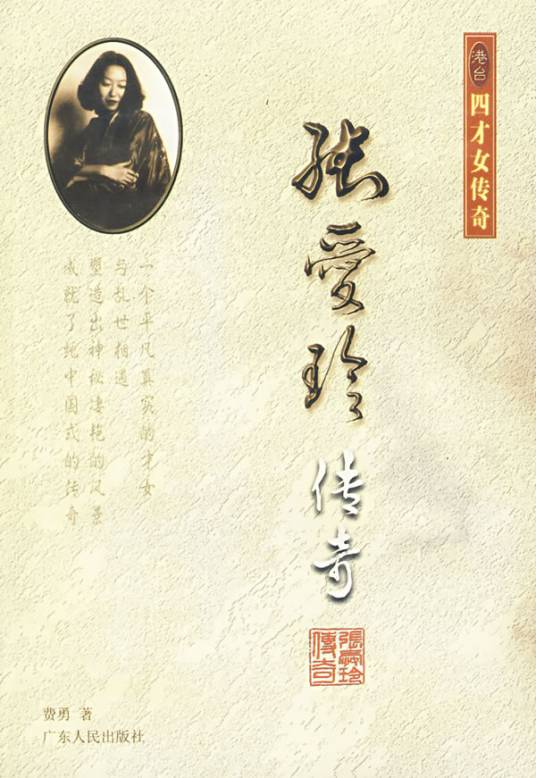 港台
四才女传奇
張愛玲
传奇
一个平凡真实的才女
与乱世相遇
塑造出神秘凄艳的风景
成就了她中国式的传奇
張愛玲
傳奇
费勇 著
广东人民出版社